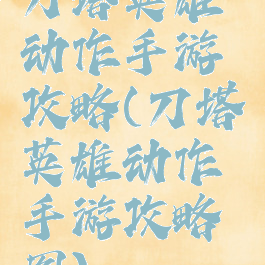 刀塔英雄
动作手游
攻略(刀塔
英雄动作
手游攻略
图)